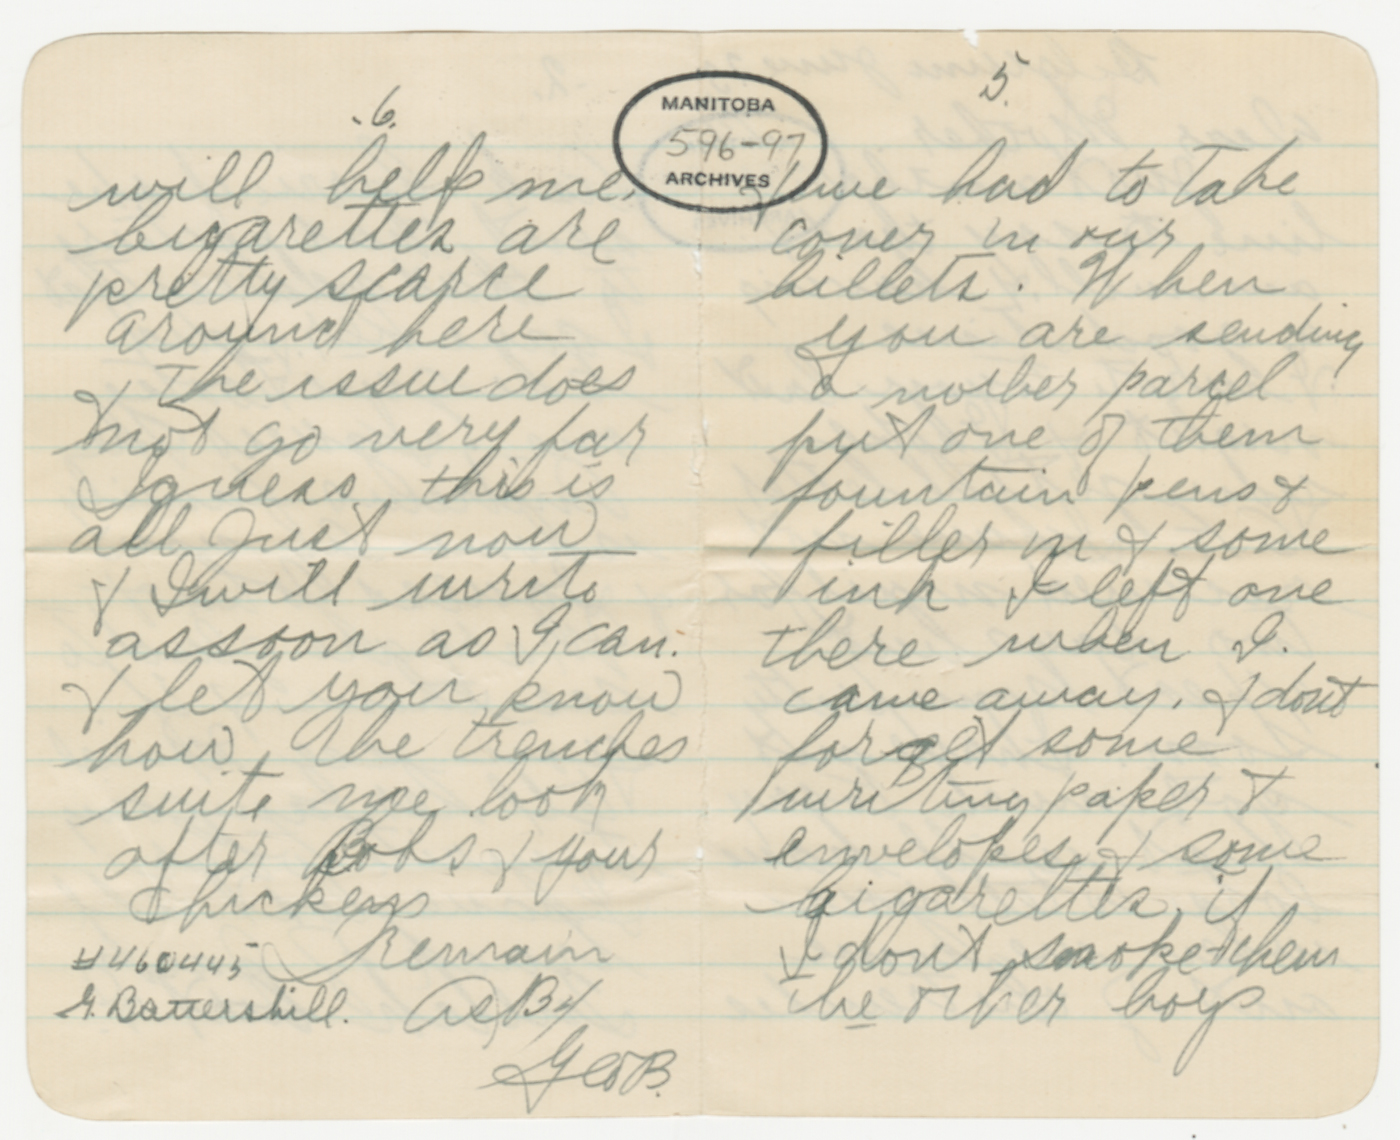 MANITOBA
596-97
ARCHIVES
5.
have had to Take
cover in our
billets. When
you are sending
a nother parcel
put one of them
fountain pens &
filler in & some
ink I left one
there when I.
came away. & dont
forget some
writing paper &
envelopes & some
Cigarettes, if
I dont smoke them
the other boys
.6.
will help me.
Cigarettes are
pretty scarce
around here
& The issue does
not go very far
I guess this is
all Just now
& I will write
assoon as I can.
& let you know
how the trenches
suite me look
after Bobs & your
Chickens
I Remain
#460445
G. Battershill.
GeoB.